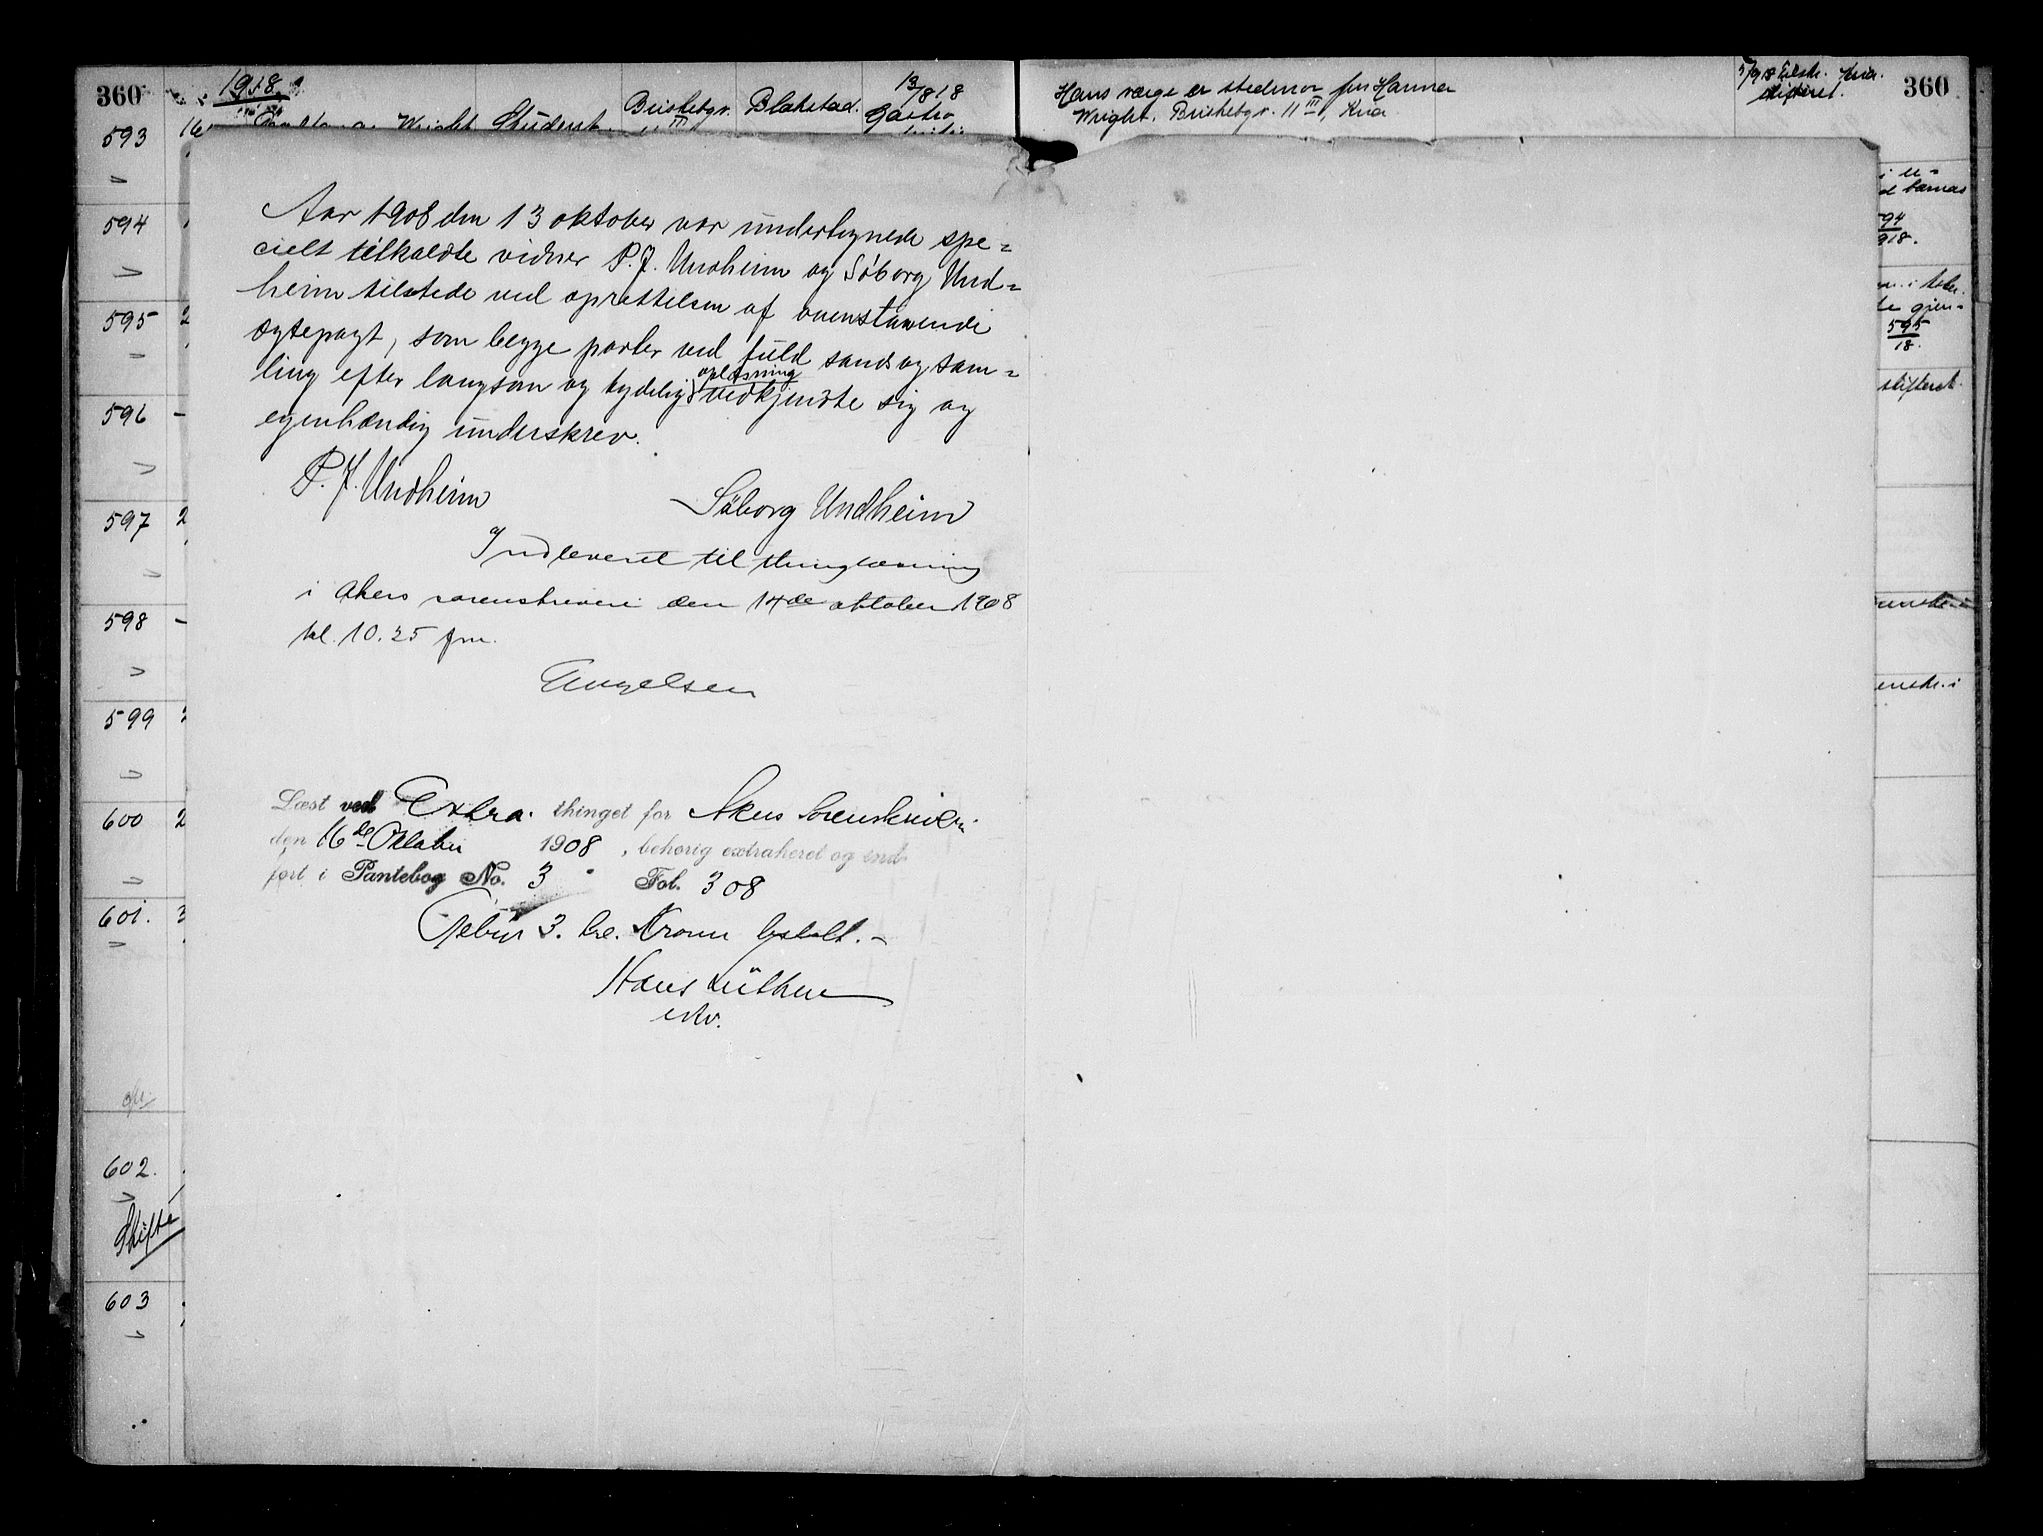 360
1918
593
Wright Student
Briskebgr. Blakstad.
13/8 18
Gastro
Hans værge er stedmor fru Hanna
Wright. Briskebgr. 11 III, Kria
skifteret.
360
594
595
596
597
598
599
600
601.
602.
Skifte
603
594
918.
595
18.
skifteret.
Aar 1908 den 13 oktober var undertegnede spe=
cielt tilkaldte vidner P. J. Undheim og Söborg Und=
heim tilstede ved oprettelsen af ovenstaaende
ægtepagt, som begge parter ved fuld sands og sam=
ling efter langsom og tydelig oplæsning vedkjendte sig og
egenhændig underskrev.
P. J. Undheim
Söborg Undheim
Indleveret til thinglæsning
i Akers sorenskriveri den 14de oktober 1908
kl. 10.25 fm.
Engelsen
Læst ved Extra thinget for Akers Sorenskriveri
den 16de Oktober 1908, behørig extraheret og ind-
ført i Pantebog No. 3 Fol. 308
Gebyr 3. tre. Kroner betalt.-
Hans Lüthen